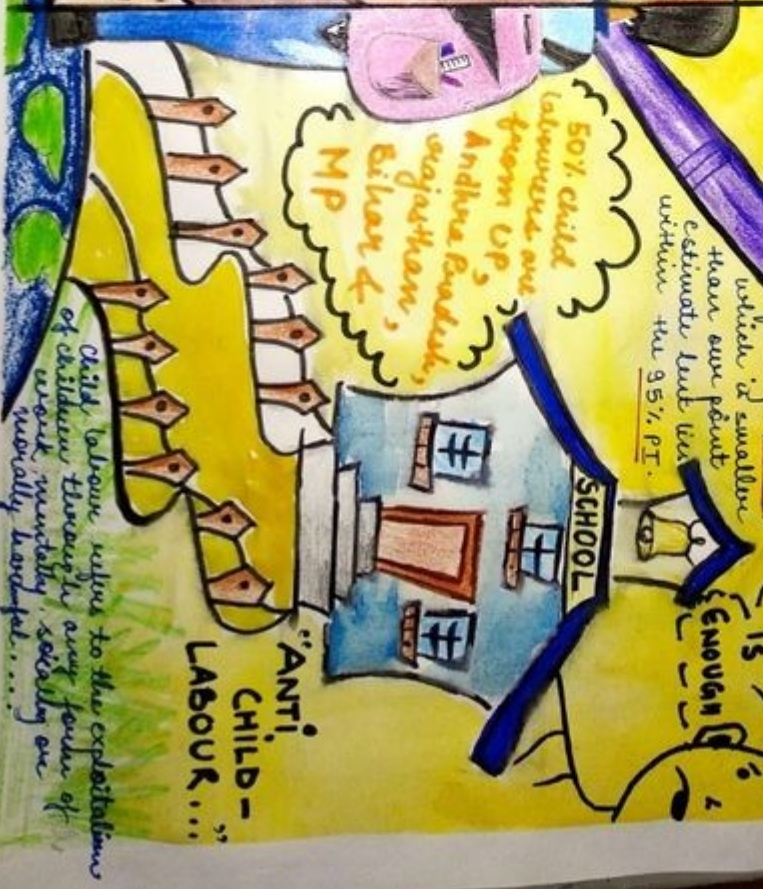 which is smaller
than our point
estimate but lies
within the 95% PI.
IS
ENOUGH
50% child
labourers are
from UP,
Andhra Pradesh,
rajasthan,
Bihar &
MP
SCHOOL
"ANTI
CHILD-
LABOUR..."
Child labour refers to the exploitation
of children through any form of
work, mentally, socially or
morally harmful....